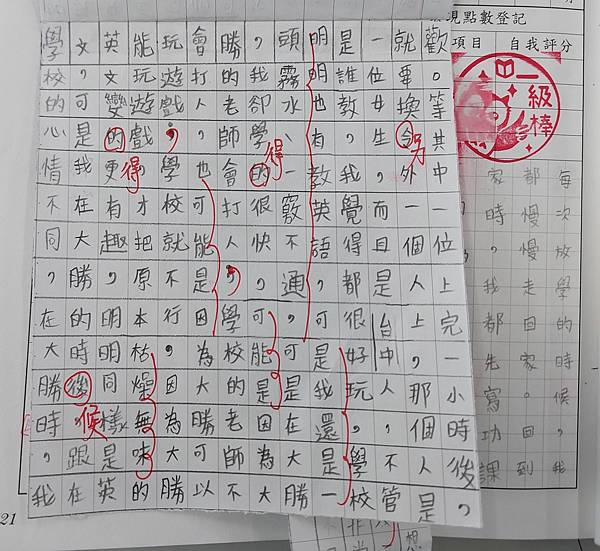 現點數登記
項目 自我評分
一級棒
歡。等其中一位上完一小時後,
就要換另外一個人上,那個人是
一位女生,而且是台中人,不管
是誰教,我覺得都很好玩,學校
明明也有教英語,可是我還是一
頭霧水、一竅不通。可是在大勝
,我卻學的得很快,可能是因為大
勝的老師會打人,學校的老師不
會打人,也可能是因為大勝可以
玩遊戲,學校就不行,因為大勝
能玩遊戲,得才把原本枯燥無味的
英文變的更有趣,明明同樣是英
文,可是我在大勝的時後候跟在
學校的心情不同,在大勝時,我
每次放學的時候,我
都慢慢走回家。回到
家時,我都先寫功課
21